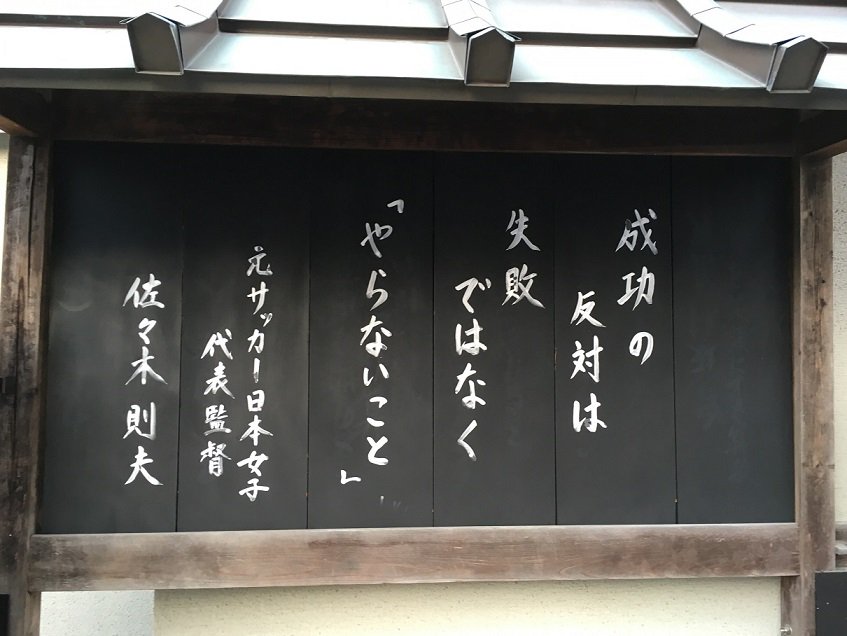 成功の
反対は
失敗
ではなく
「やらないこと」
元サッカー日本女子
代表監督
佐々木則夫